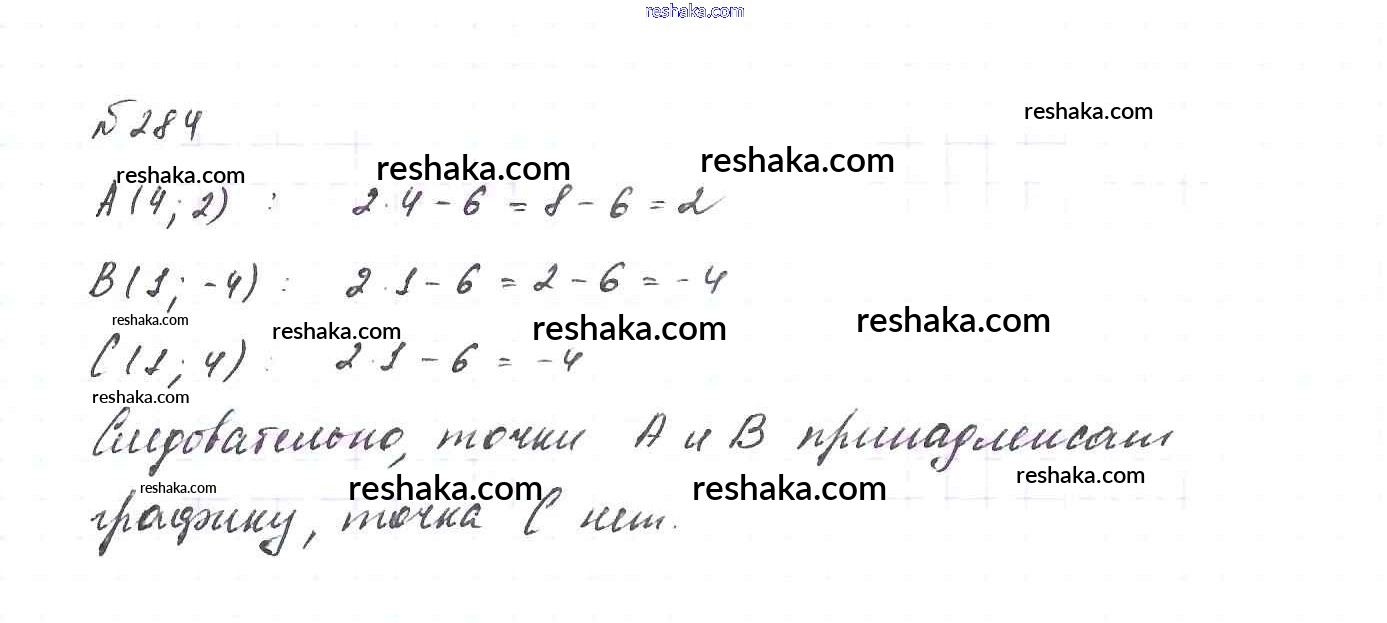 reshaka.com
№ 284
reshaka.com
reshaka.com reshaka.com reshaka.com
A (4; 2) : 2·4 - 6 = 8 - 6 = 2
B (1; -4) : 2·1 - 6 = 2 - 6 = -4
reshaka.com reshaka.com reshaka.com reshaka.com
C (1; 4) : 2·1 - 6 = -4
reshaka.com
Следовательно, точки A и B принадлежат
reshaka.com reshaka.com reshaka.com reshaka.com
графику, точка C нет.